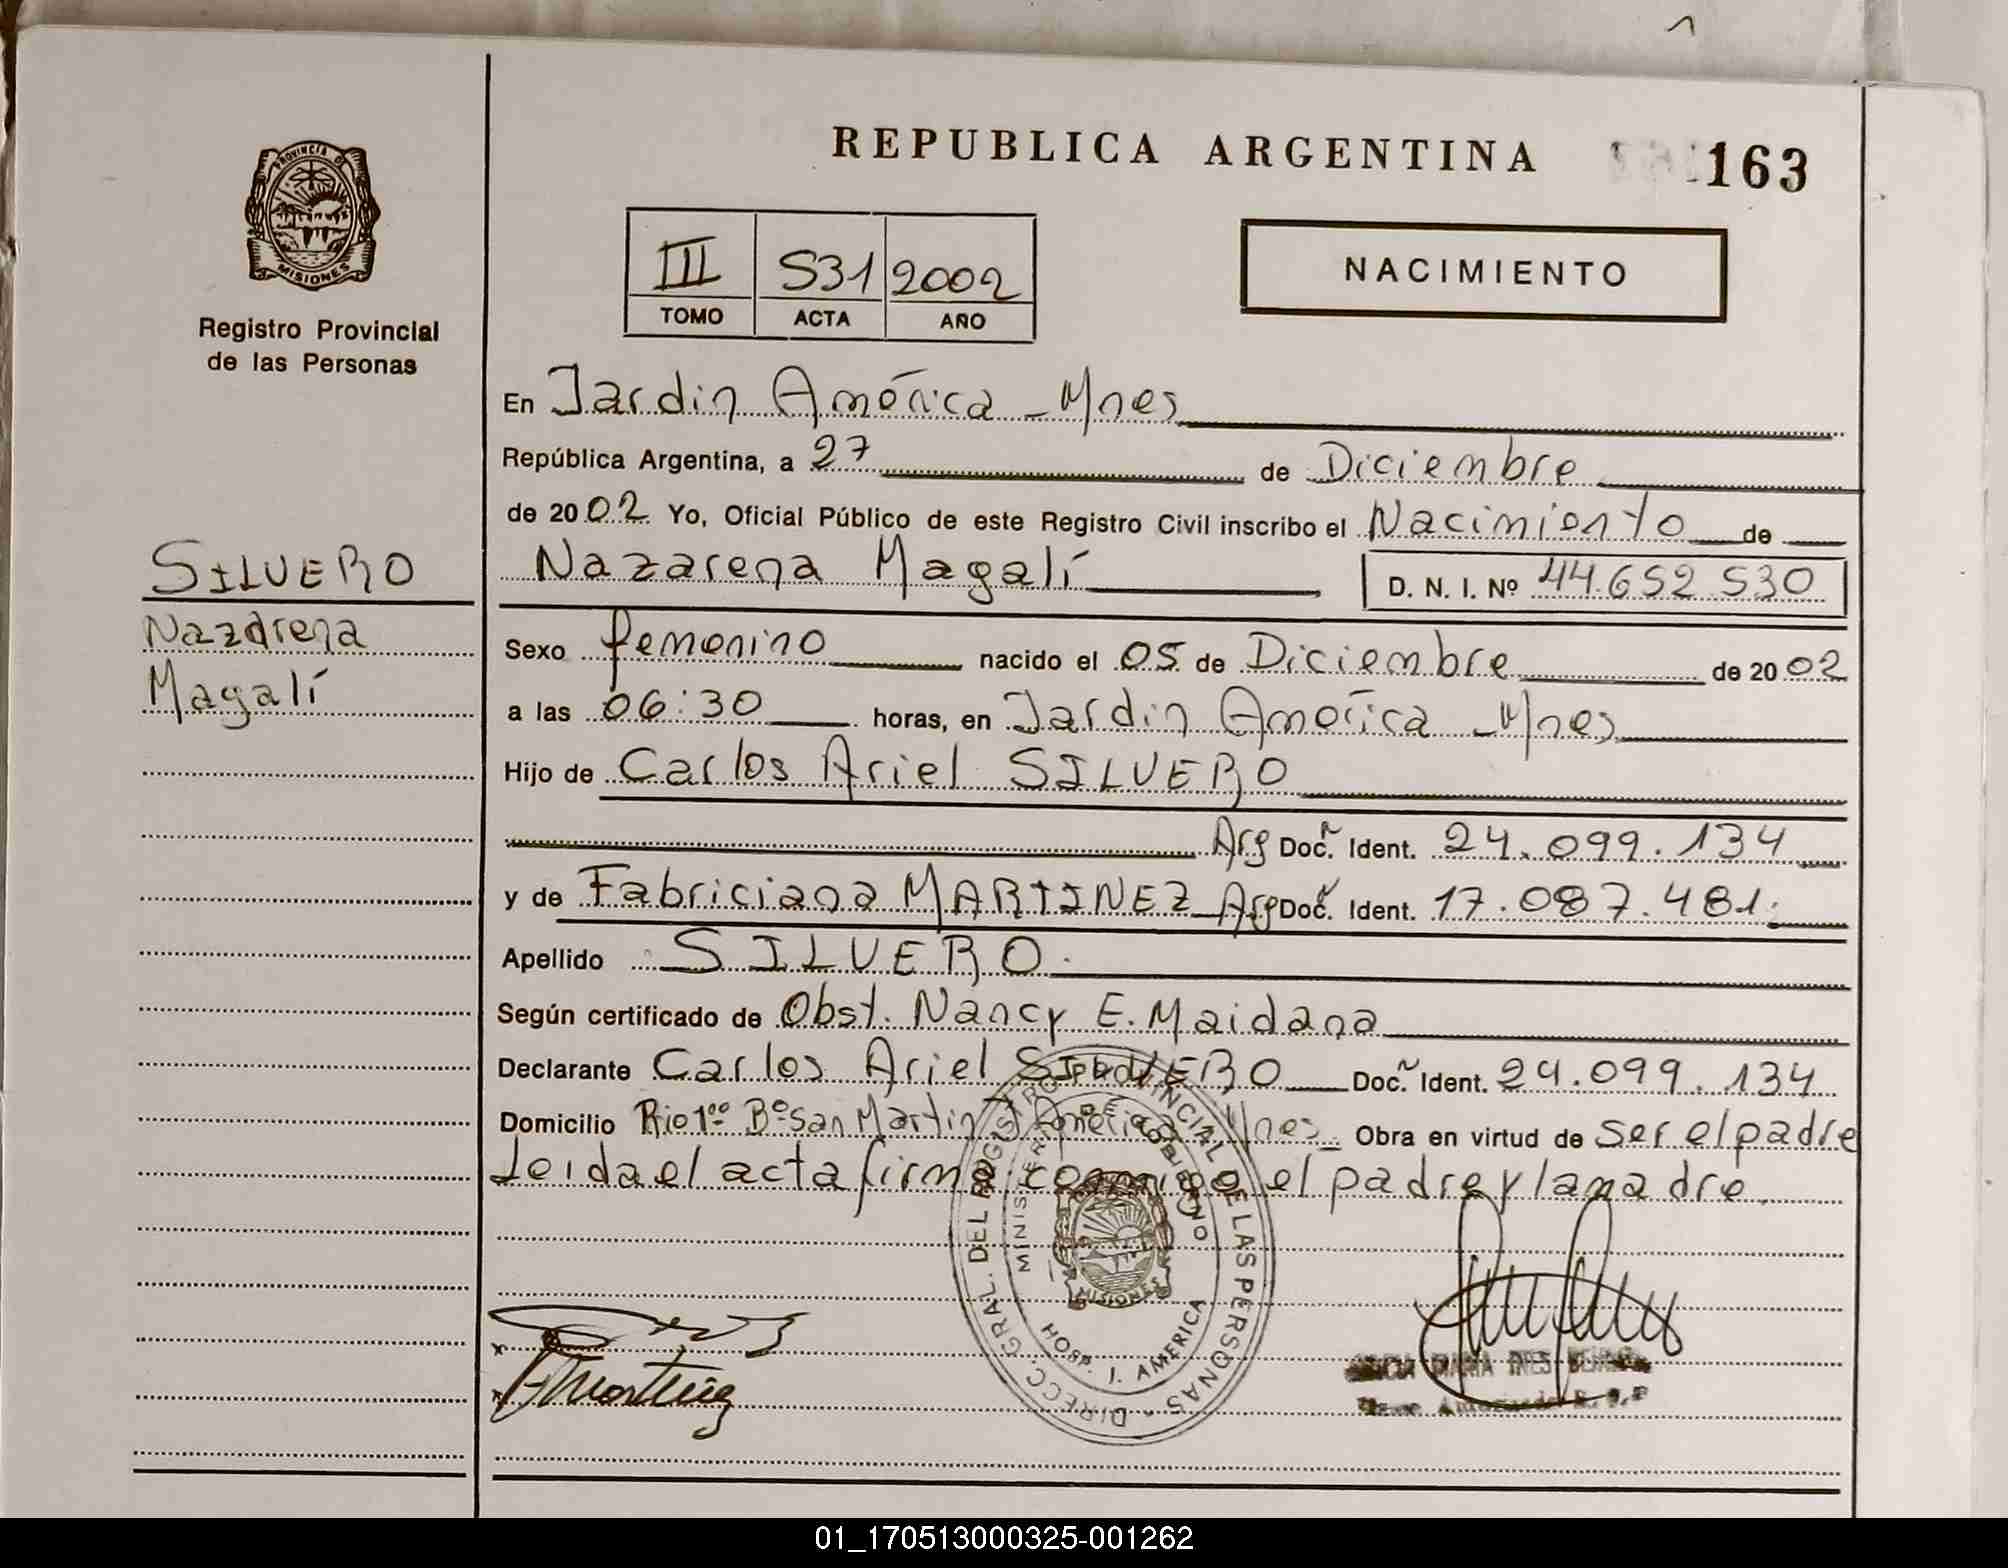 REPUBLICA ARGENTINA 163
PROVINCIA DE
MISIONES
Registro Provincial
de las Personas
III 531 2002
TOMO ACTA AÑO
NACIMIENTO
En Jardin América - Mnes
República Argentina, a 27 de Diciembre
de 2002 Yo, Oficial Público de este Registro Civil inscribo el Nacimiento de
Nazarena Magalí D. N. I. Nº 44.652 530
SILVERO
Nazarena
Magalí
Sexo femenino nacido el 05 de Diciembre de 2002
a las 06:30 horas, en Jardin América - Mnes
Hijo de Carlos Ariel SILVERO
Arg Doc. Ident. 24.099.134
y de Fabriciana MARTINEZ Arg Doc. Ident. 17.087.481
Apellido SILVERO
Según certificado de Obst. Nancy E. Maidana
Declarante Carlos Ariel SILVERO Doc. Ident. 24.099.134
Domicilio Rio 1º Bº San Martin J América Mnes Obra en virtud de Ser el padre
Leida el acta firma conmigo el padre y la madre
DIRECC. GRAL. DEL REGISTRO PROVINCIAL DE LAS PERSONAS
MINISTERIO DE GOBIERNO
MISIONES
HOSP. J. AMERICA
MARIA INES
01_170513000325-001262